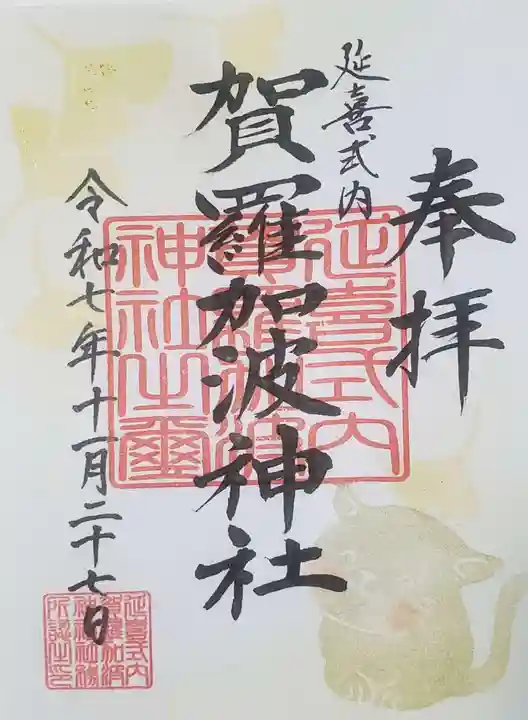 奉拝
延喜式内
賀羅加波神社
令和七年十一月二十七日
延喜式内
賀羅加波
神社之璽
延喜式内
賀羅加波
神社社務
所認之印